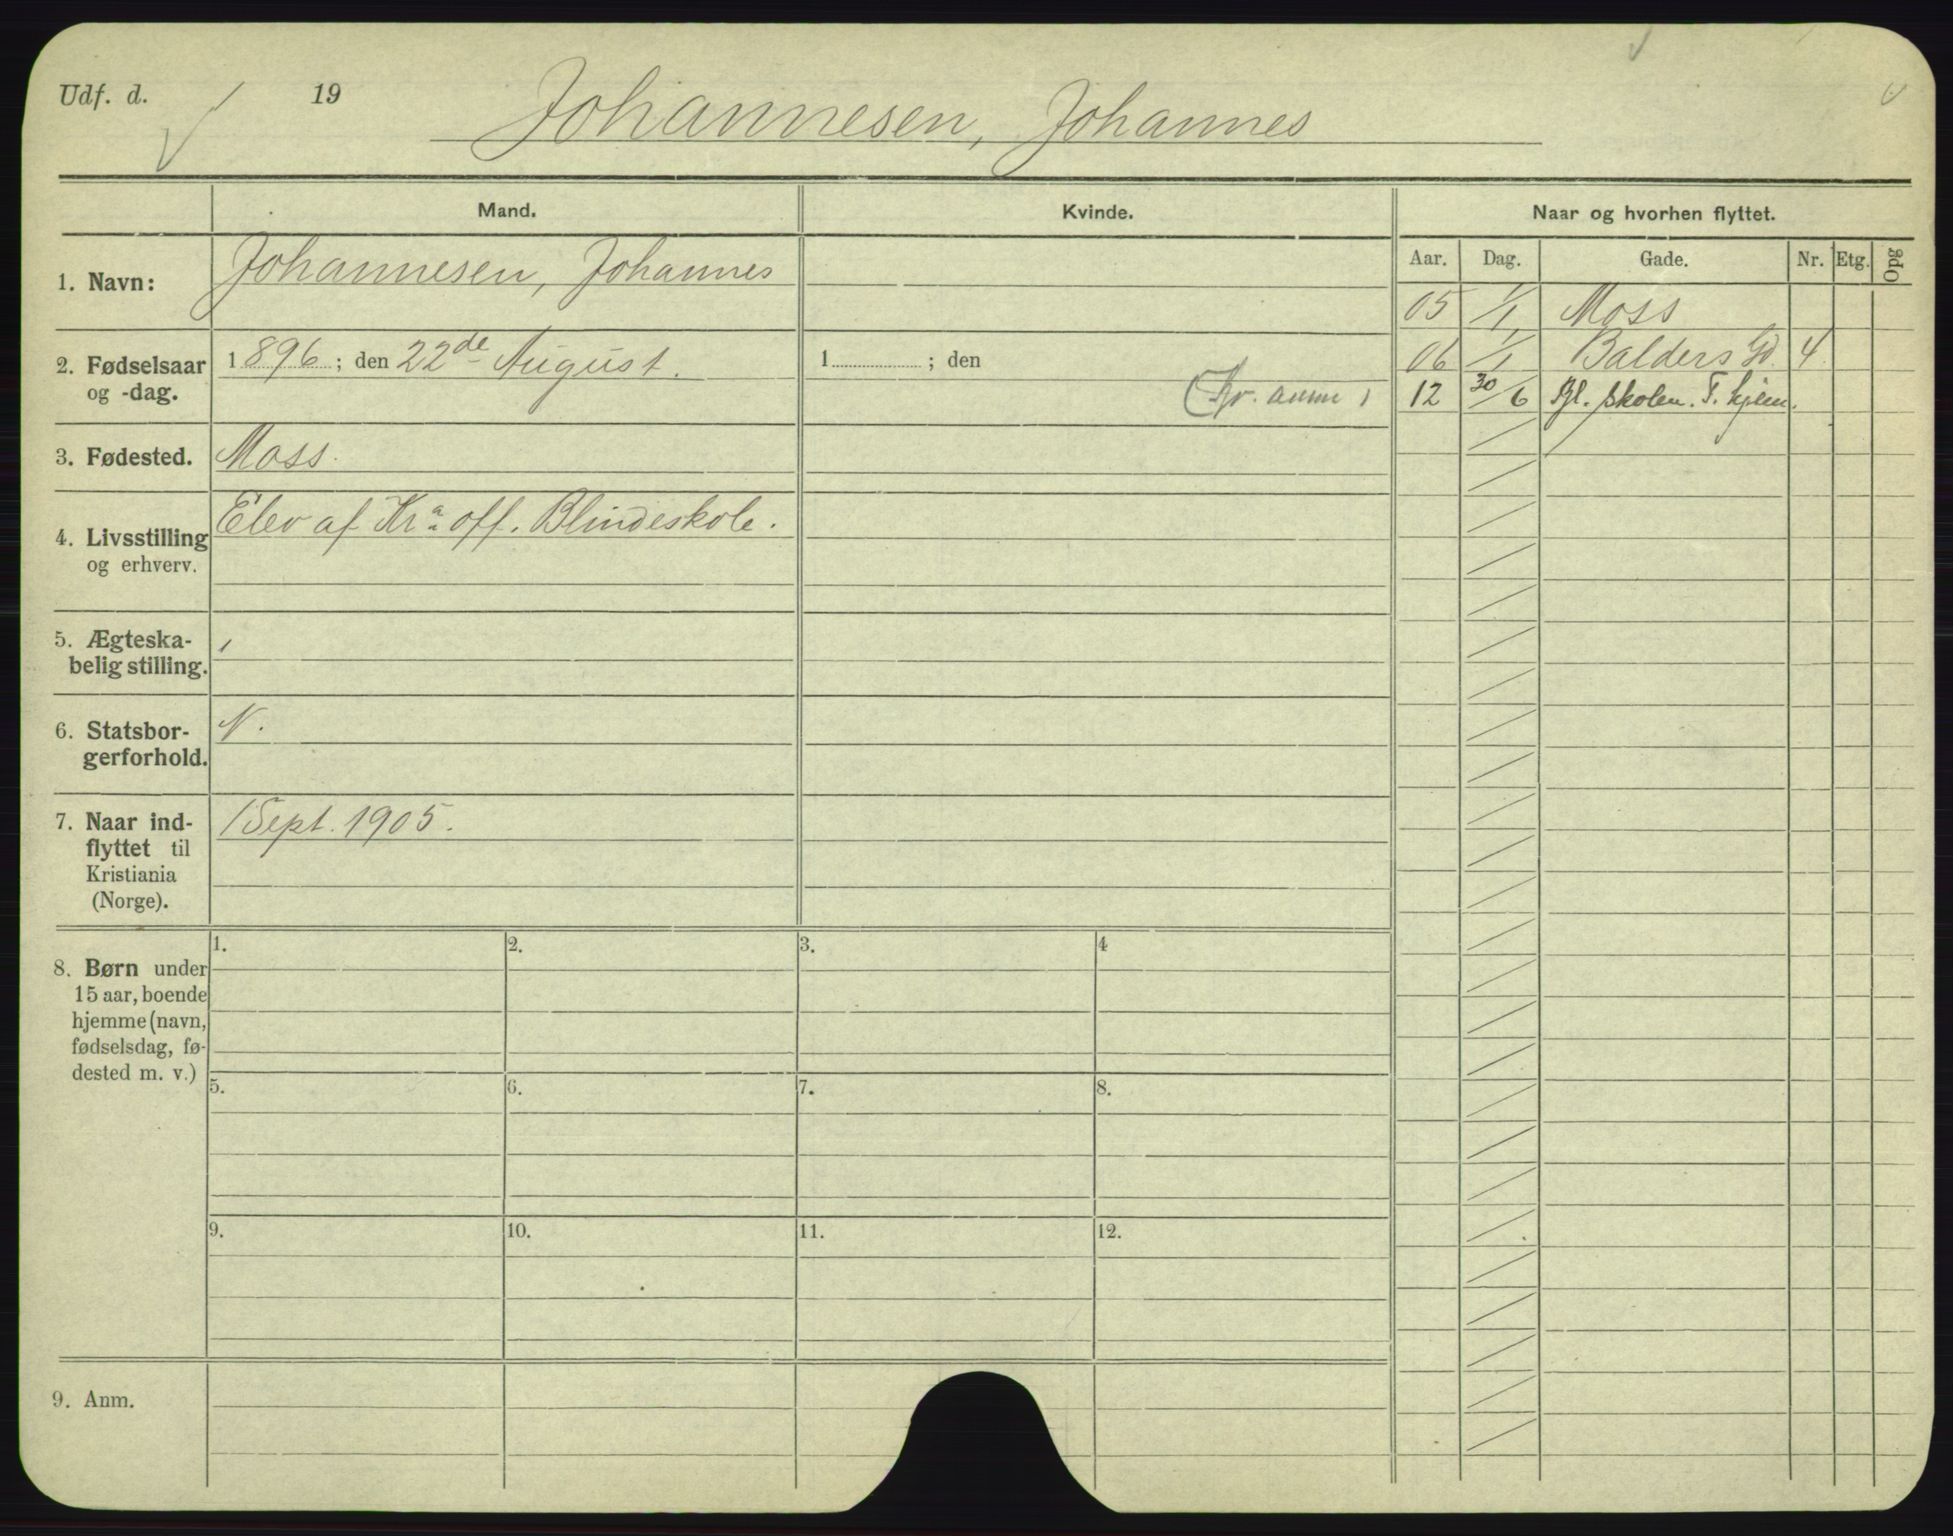 Udf. d. 19
Johannesen, Johannes
Mand.
Kvinde.
Naar og hvorhen flyttet.
Aar. Dag. Gade. Nr. Etg. Opg
1. Navn: Johannesen, Johannes
05 1/1 Moss
2. Fødselsaar og -dag. 1896; den 22de August.
1 ; den
06 1/1 Balders Gd 4
12 30/6 Bl. skolen. T. hjem.
3. Fødested. Moss.
4. Livsstilling og erhverv. Elev af Kra off. Blindeskole.
5. Ægteska-
belig stilling.
6. Statsbor-
gerforhold. N.
7. Naar ind-
flyttet til
Kristiania
(Norge). 1 Sept. 1905.
8. Børn under
15 aar, boende
hjemme (navn,
fødselsdag, fø-
dested m. v.)
1. 2. 3. 4
5. 6. 7. 8.
9. 10. 11. 12.
9. Anm.